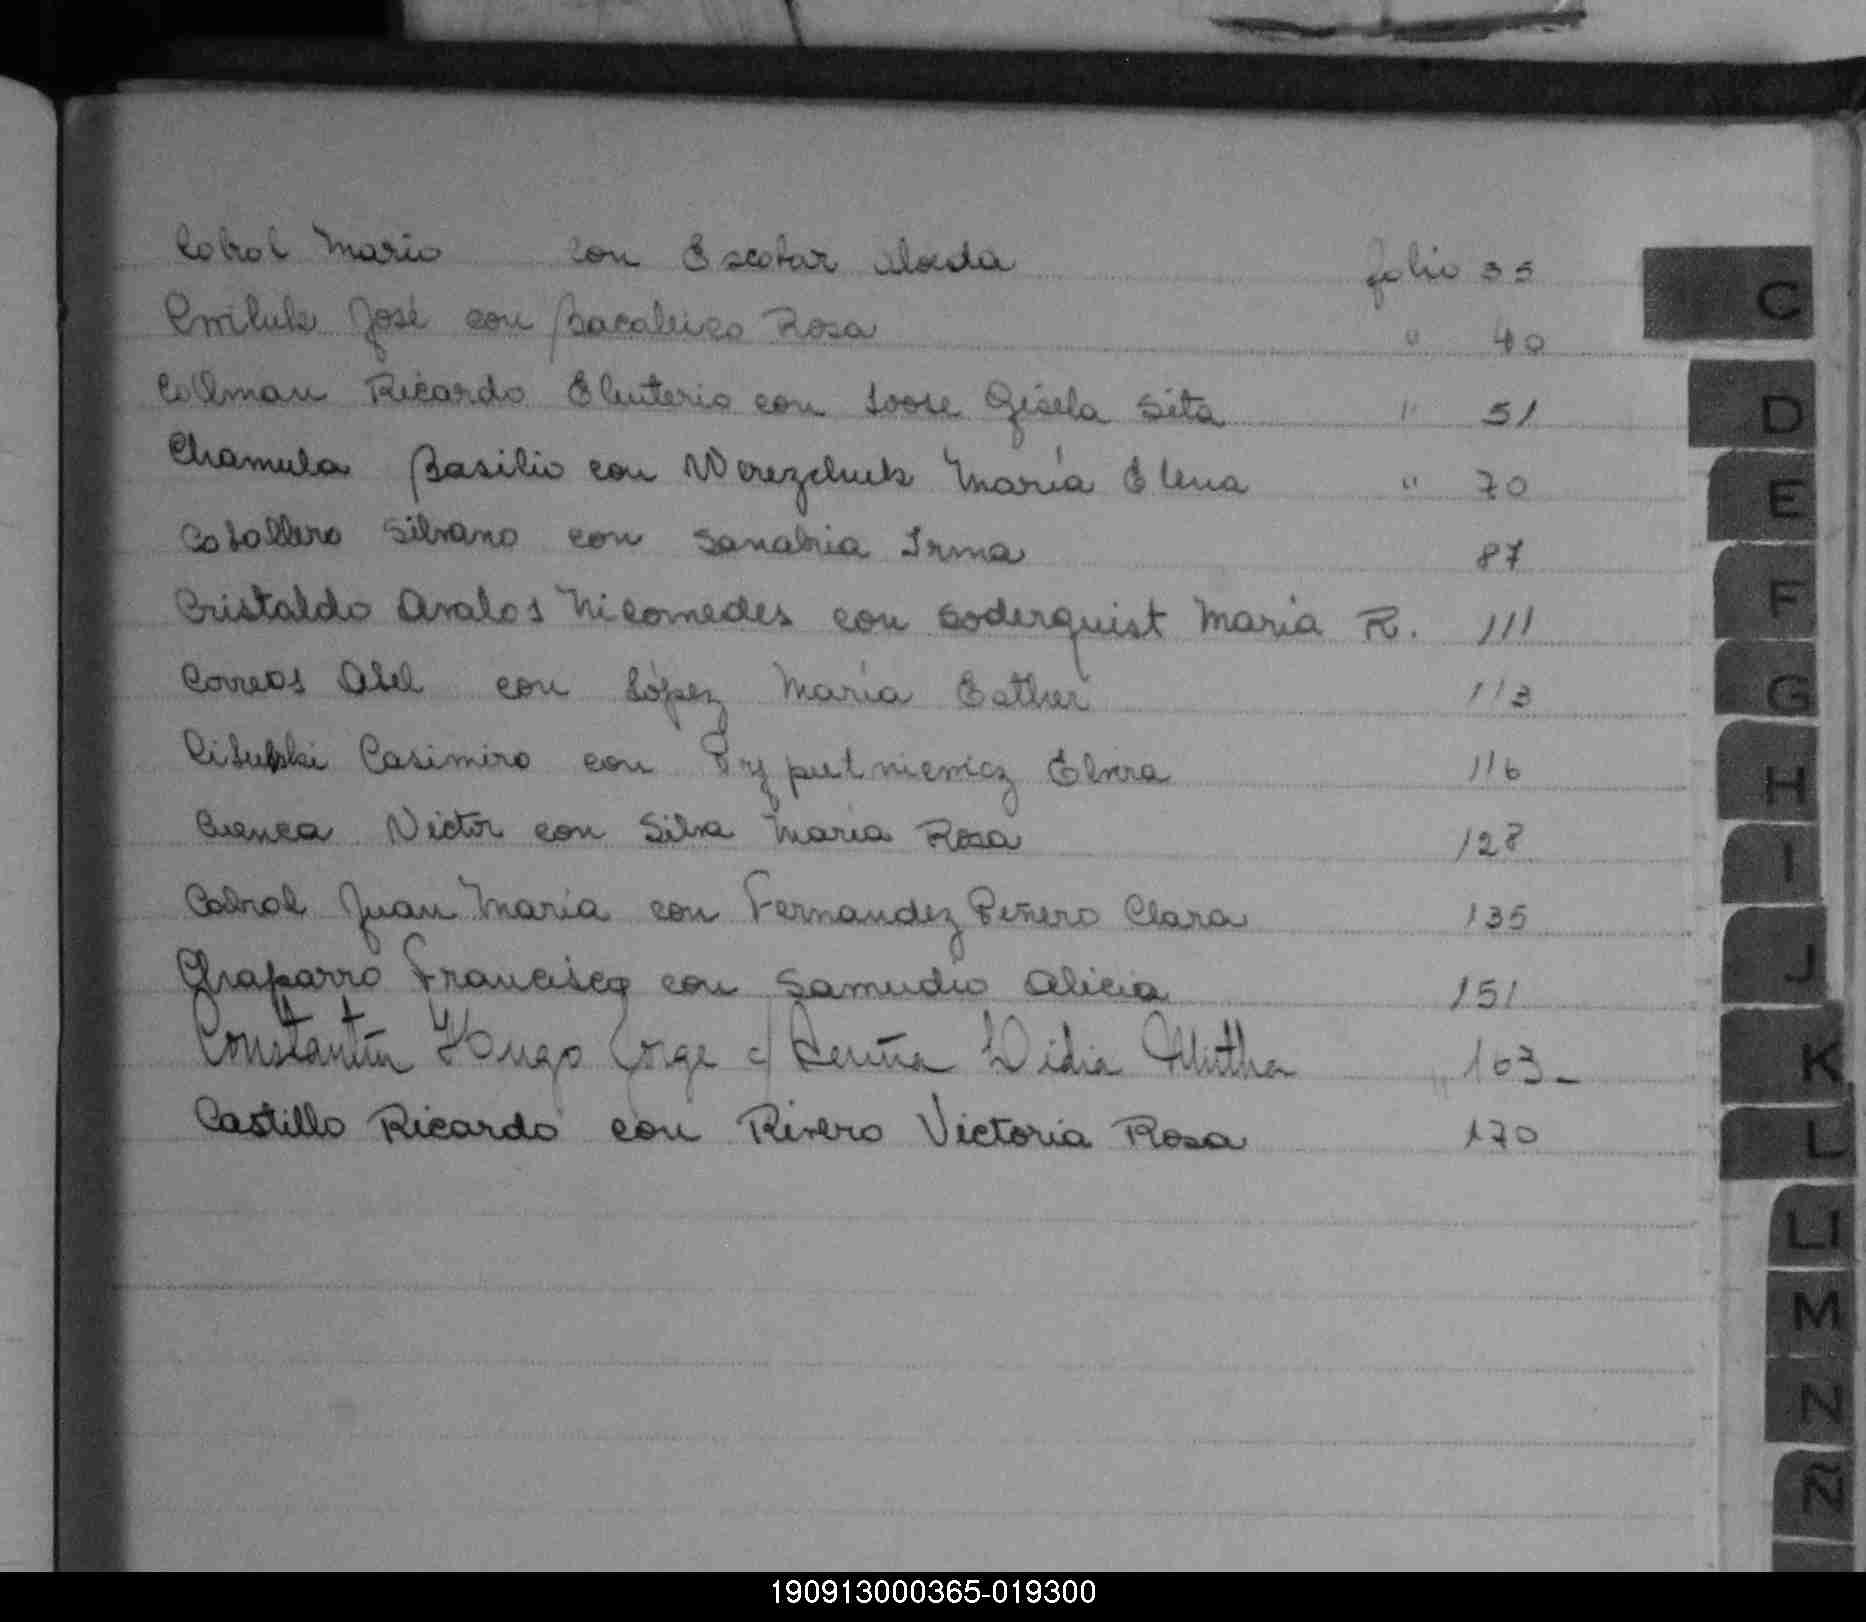 Cabral Mario con Escobar Aleida folio 35
Cmiluk José con Bacaleico Rosa " 40
Collman Ricardo Eleuterio con Loose Gisela Sita " 51
Chamula Basilio con Werezchuk María Elena " 70
Caballero Silvano con Sanabria Irma 87
Cristaldo Avalos Nicomedes con Soderquist María R. 111
Correas Abel con López María Esther 113
Casimiro con Elvira 116
Cuenca Victor con Silva María Rosa 128
Cabral Juan María con Fernandez Peñero Clara 135
Chaparro Francisco con Samudio Alicia 151
Constantín Hugo Jorge c/ Lidia Mirtha " 163-
Castillo Ricardo con Rivero Victoria Rosa 170
C
D
E
F
G
H
I
J
K
L
Ll
M
N
Ñ
190913000365-019300